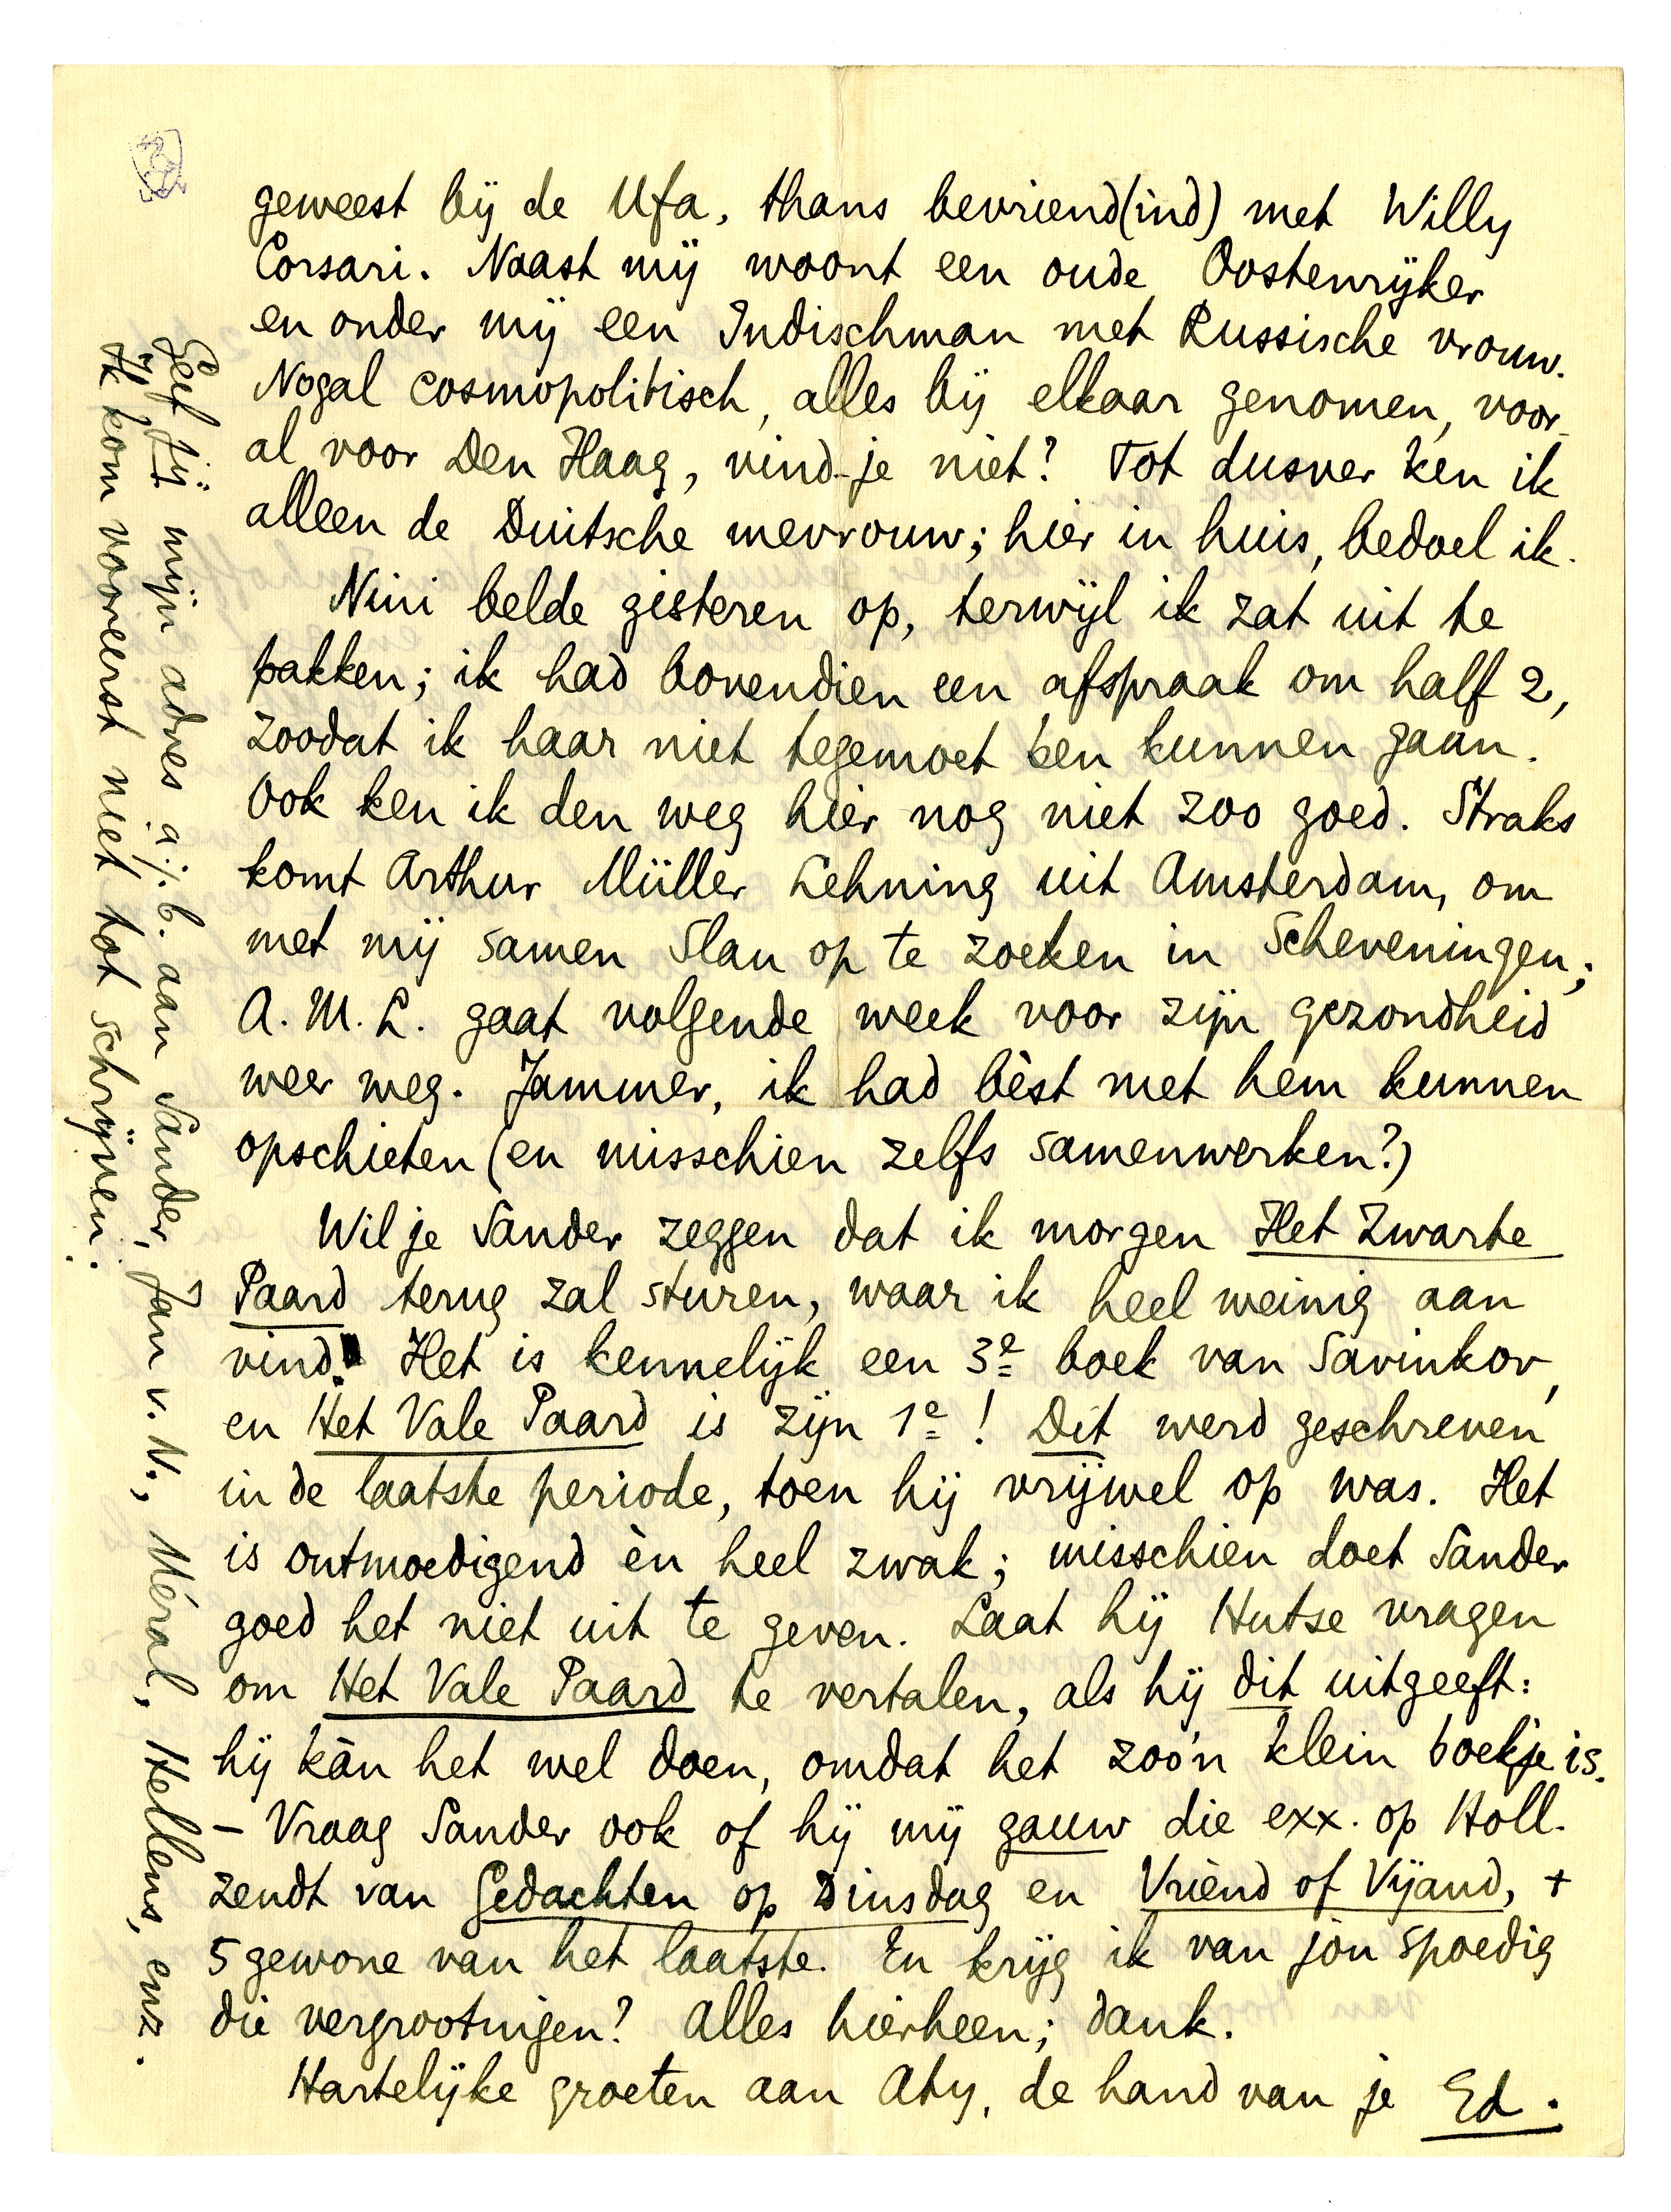 geweest bij de Ufa, thans bevriend(ind) met Willy
Corsari. Naast mij woont een oude Oostenrijker
en onder mij een Indischman met Russische vrouw.
Nogal cosmopolitisch, alles bij elkaar genomen, voor-
al voor Den Haag, vind-je niet? Tot dusver ken ik
alleen de Duitsche mevrouw; hier in huis, bedoel ik.
Nini belde gisteren op, terwijl ik zat uit te
pakken; ik had bovendien een afspraak om half 2,
zoodat ik haar niet tegemoet ben kunnen gaan.
Ook ken ik den weg hier nog niet zoo goed. Straks
komt Arthur Müller Lehning uit Amsterdam, om
met mij samen Slau op te zoeken in Scheveningen;
A. M. L. gaat volgende week voor zijn gezondheid
weer weg. Jammer, ik had bèst met hem kunnen
opschieten (en misschien zelfs samenwerken?)
Wil je Sander zeggen dat ik morgen Het Zwarte
Paard terug zal sturen, waar ik heel weinig aan
vind! Het is kennelijk een 3e boek van Savinkov,
en Het Vale Paard is zijn 1e! Dit werd geschreven
in de laatste periode, toen hij vrijwel op was. Het
is ontmoedigend èn heel zwak; misschien doet Sander
goed het niet uit te geven. Laat hij Hutse vragen
om Het Vale Paard te vertalen, als hij dit uitgeeft:
hij kàn het wel doen, omdat het zoo'n klein boekje is.
– Vraag Sander ook of hij mij gauw die exx. op Holl.
zendt van Gedachten op Dinsdag en Vriend of Vijand, +
5 gewone van het laatste. En krijg ik van jou spoedig
die vergrootingen? Alles hierheen; dank.
Hartelijke groeten aan Aty, de hand van je Ed.
Geef jij mijn adres a.j.b. aan Sander, Jan v. N., Méral, Hellens, enz.
Ik kom vooreerst niet tot schrijven.